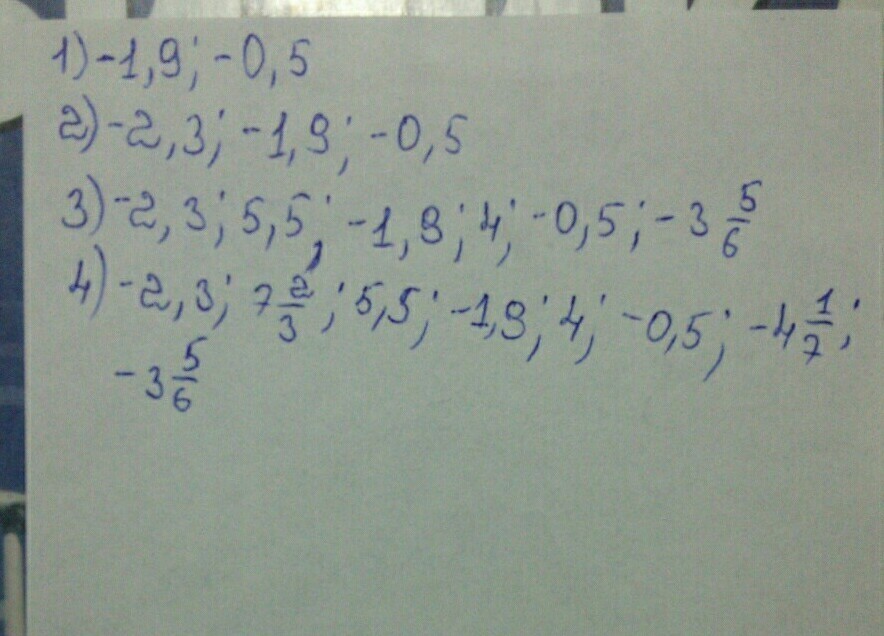 1) -1,9; -0,5
2) -2,3; -1,9; -0,5
3) -2,3; 5,5; -1,9; 4; -0,5; -3 5/6
4) -2,3; 7 2/3; 5,5; -1,9; 4; -0,5; -4 1/7;
-3 5/6